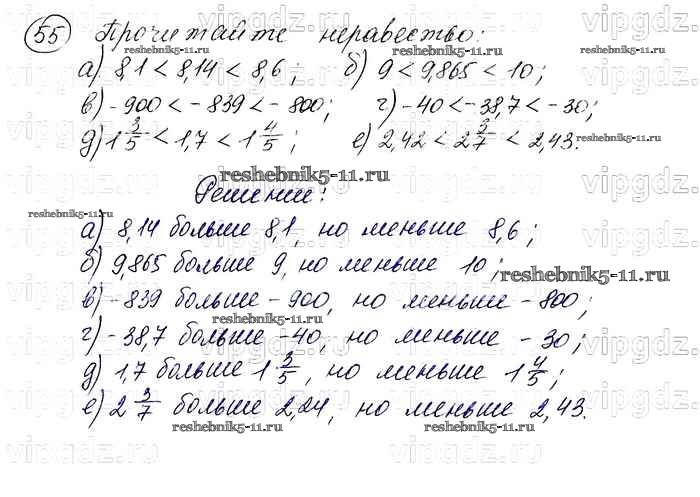 55 Прочитайте неравество:
а) 8,1 < 8,14 < 8,6; б) 9 < 9,865 < 10;
в) -900 < -839 < -800; г) -40 < -38,7 < -30;
д) 1 3/5 < 1,7 < 1 4/5; е) 2,42 < 2 3/7 < 2,43.
Решение:
а) 8,14 больше 8,1, но меньше 8,6;
б) 9,865 больше 9, но меньше 10;
в) -839 больше -900, но меньше -800;
г) -38,7 больше -40, но меньше -30;
д) 1,7 больше 1 3/5, но меньше 1 4/5;
е) 2 3/7 больше 2,24, но меньше 2,43.
reshebnik5-11.ru
vipgdz.ru